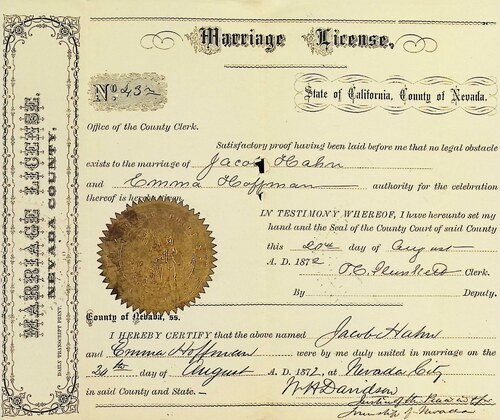 MARRIAGE LICENSE.
NEVADA COUNTY.
DAILY TRANSCRIPT PRINT.
Marriage License,
No. 232
State of California, County of Nevada.
Office of the County Clerk.
Satisfactory proof having been laid before me that no legal obstacle
exists to the marriage of Jacob Hahn
and Emma Hoffman authority for the celebration
thereof is hereby given.
IN TESTIMONY WHEREOF, I have hereunto set my
hand and the Seal of the County Court of said County
this 20th day of August
A. D. 1872
Clerk.
By Deputy.
County of Nevada, ss.
I HEREBY CERTIFY that the above named Jacob Hahn
and Emma Hoffman were by me duly united in marriage on the
20th day of August A. D. 1872, at Nevada City
in said County and State. W H Davidson
Justice of the Peace in & for
Township of Nevada